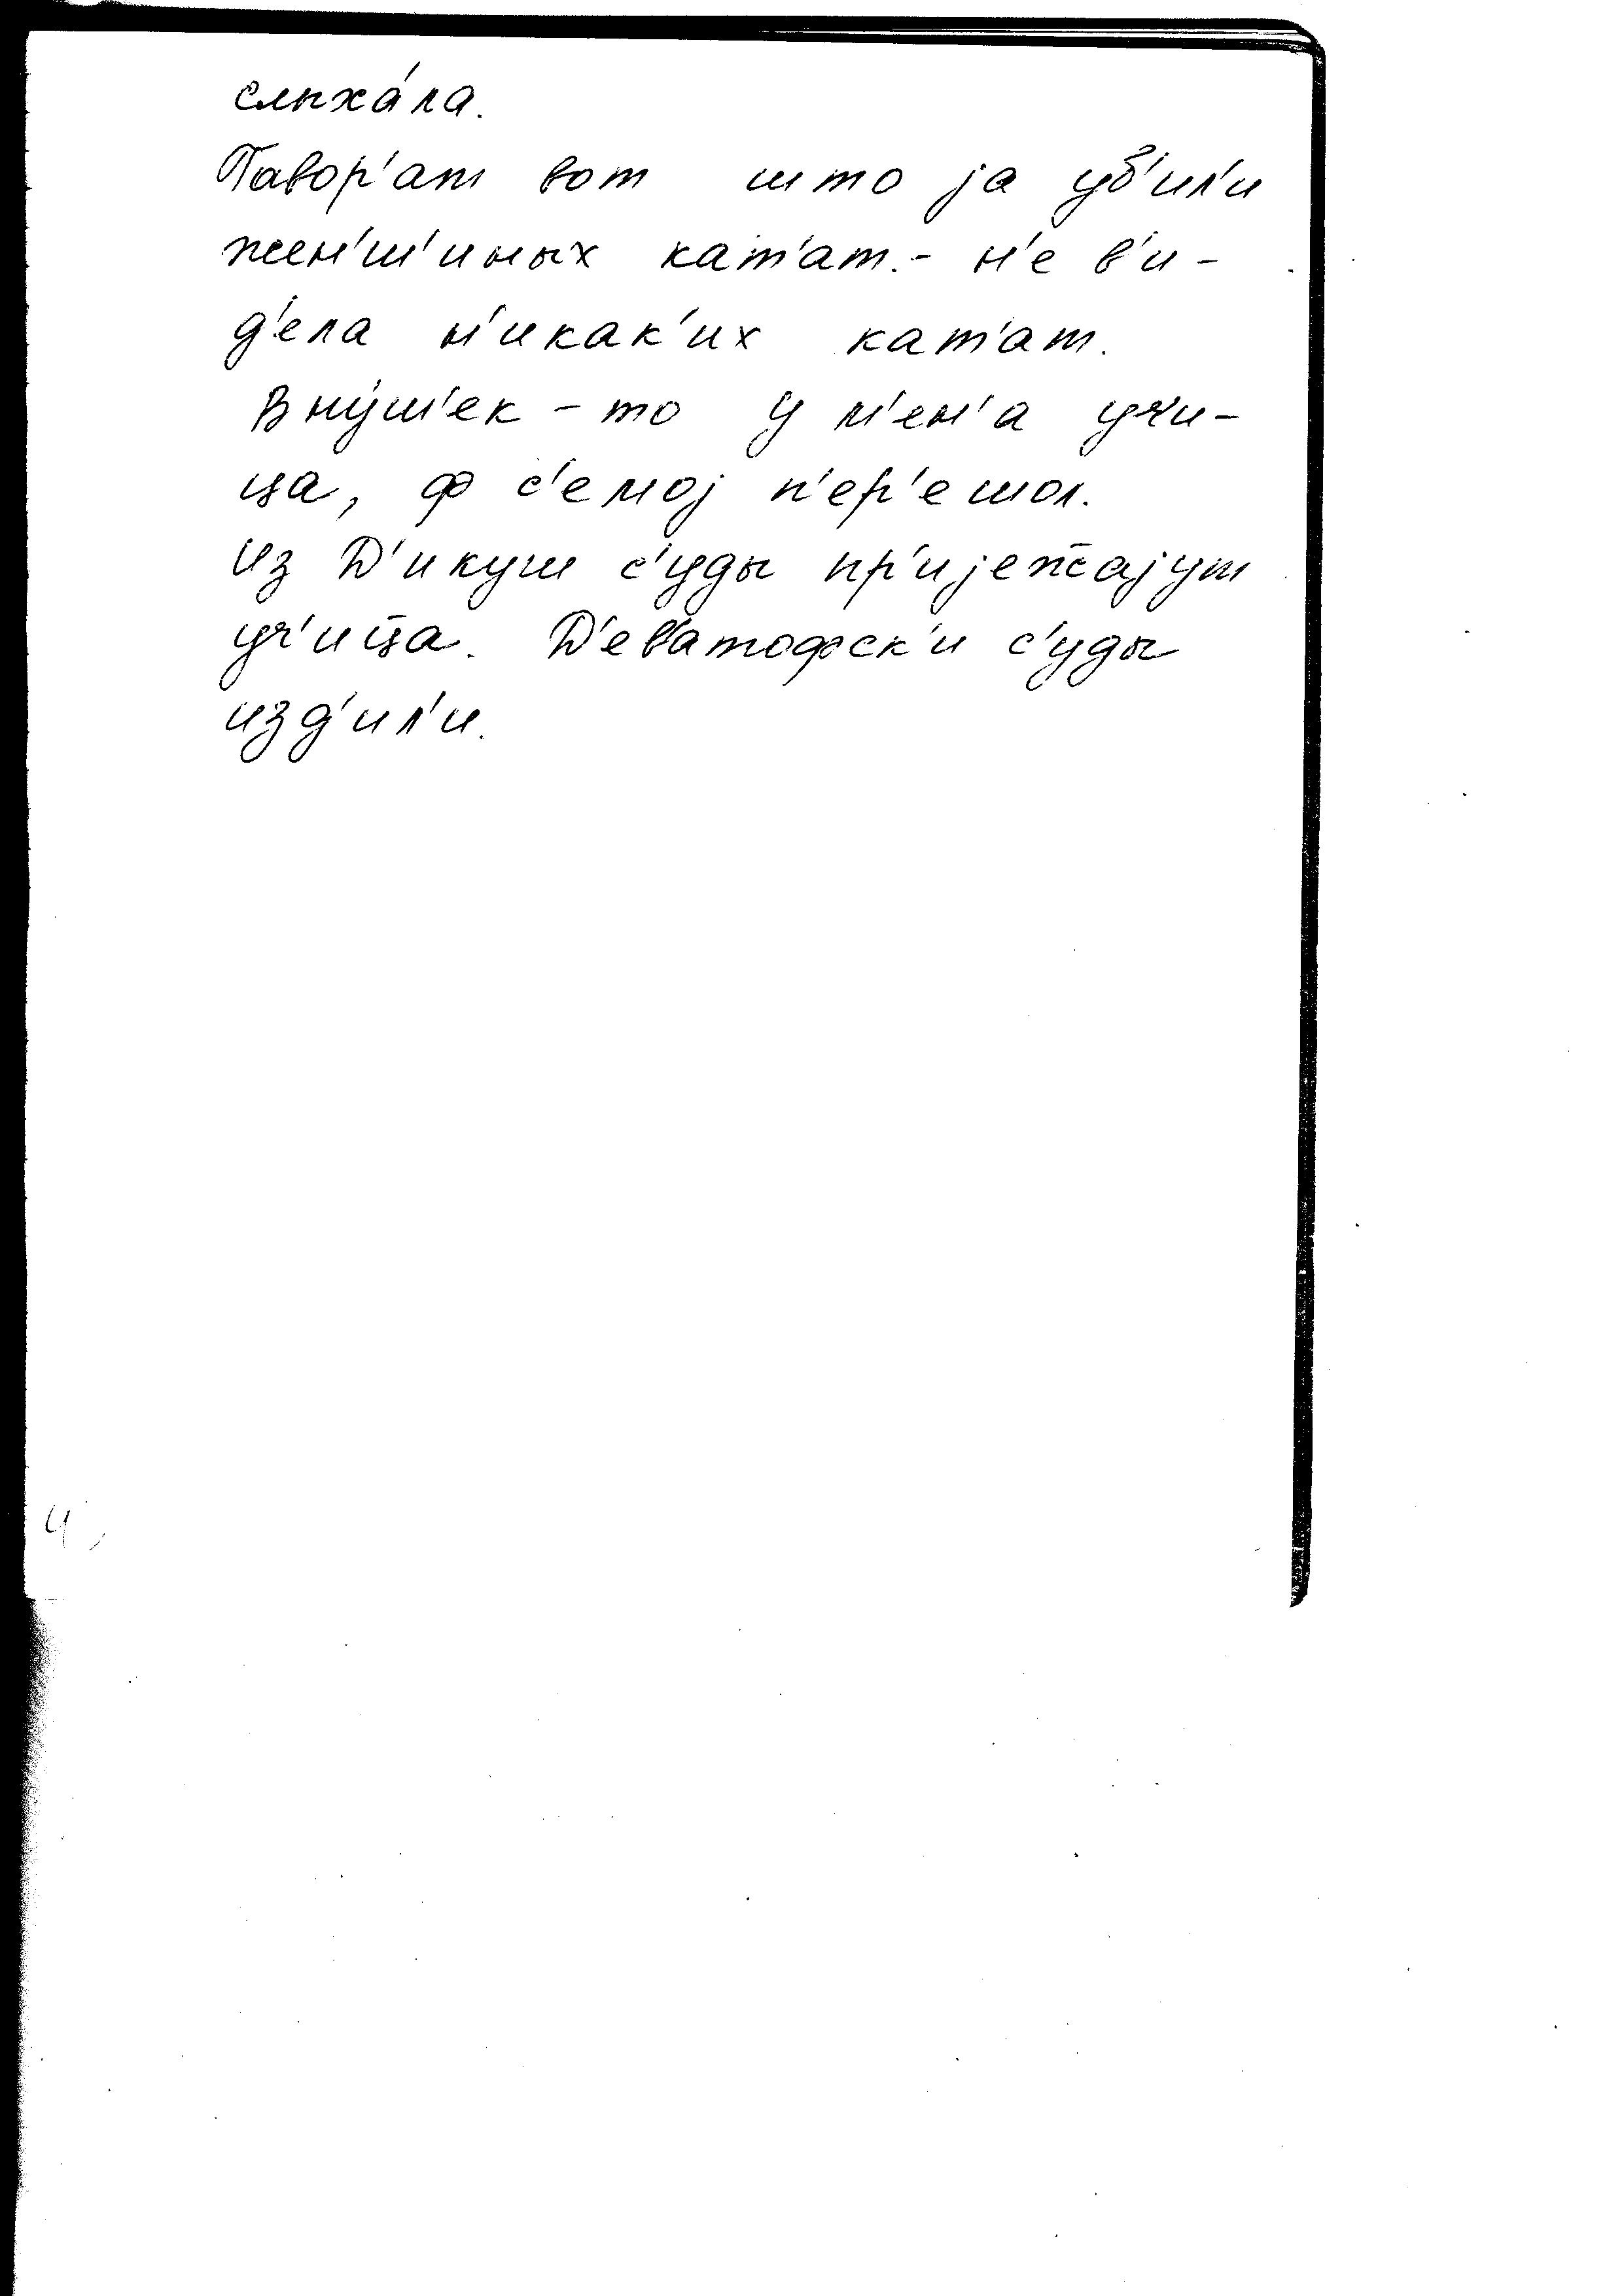 слыха́ла.
Павор'ат вот што jа уб'ил'и
жен'ш'иных кат'ат. - н'е в'и-
д'ела н'икак'их кат'ат.
Вну́ш'ек - то у м'ен'а учи-
ца, ф с'емоj п'ер'ешол.
Из Д'икуш с'уды пр'иjеж̅аjут
уч'ица. Д'ев'атофск'и с'уды
изд'ил'и.